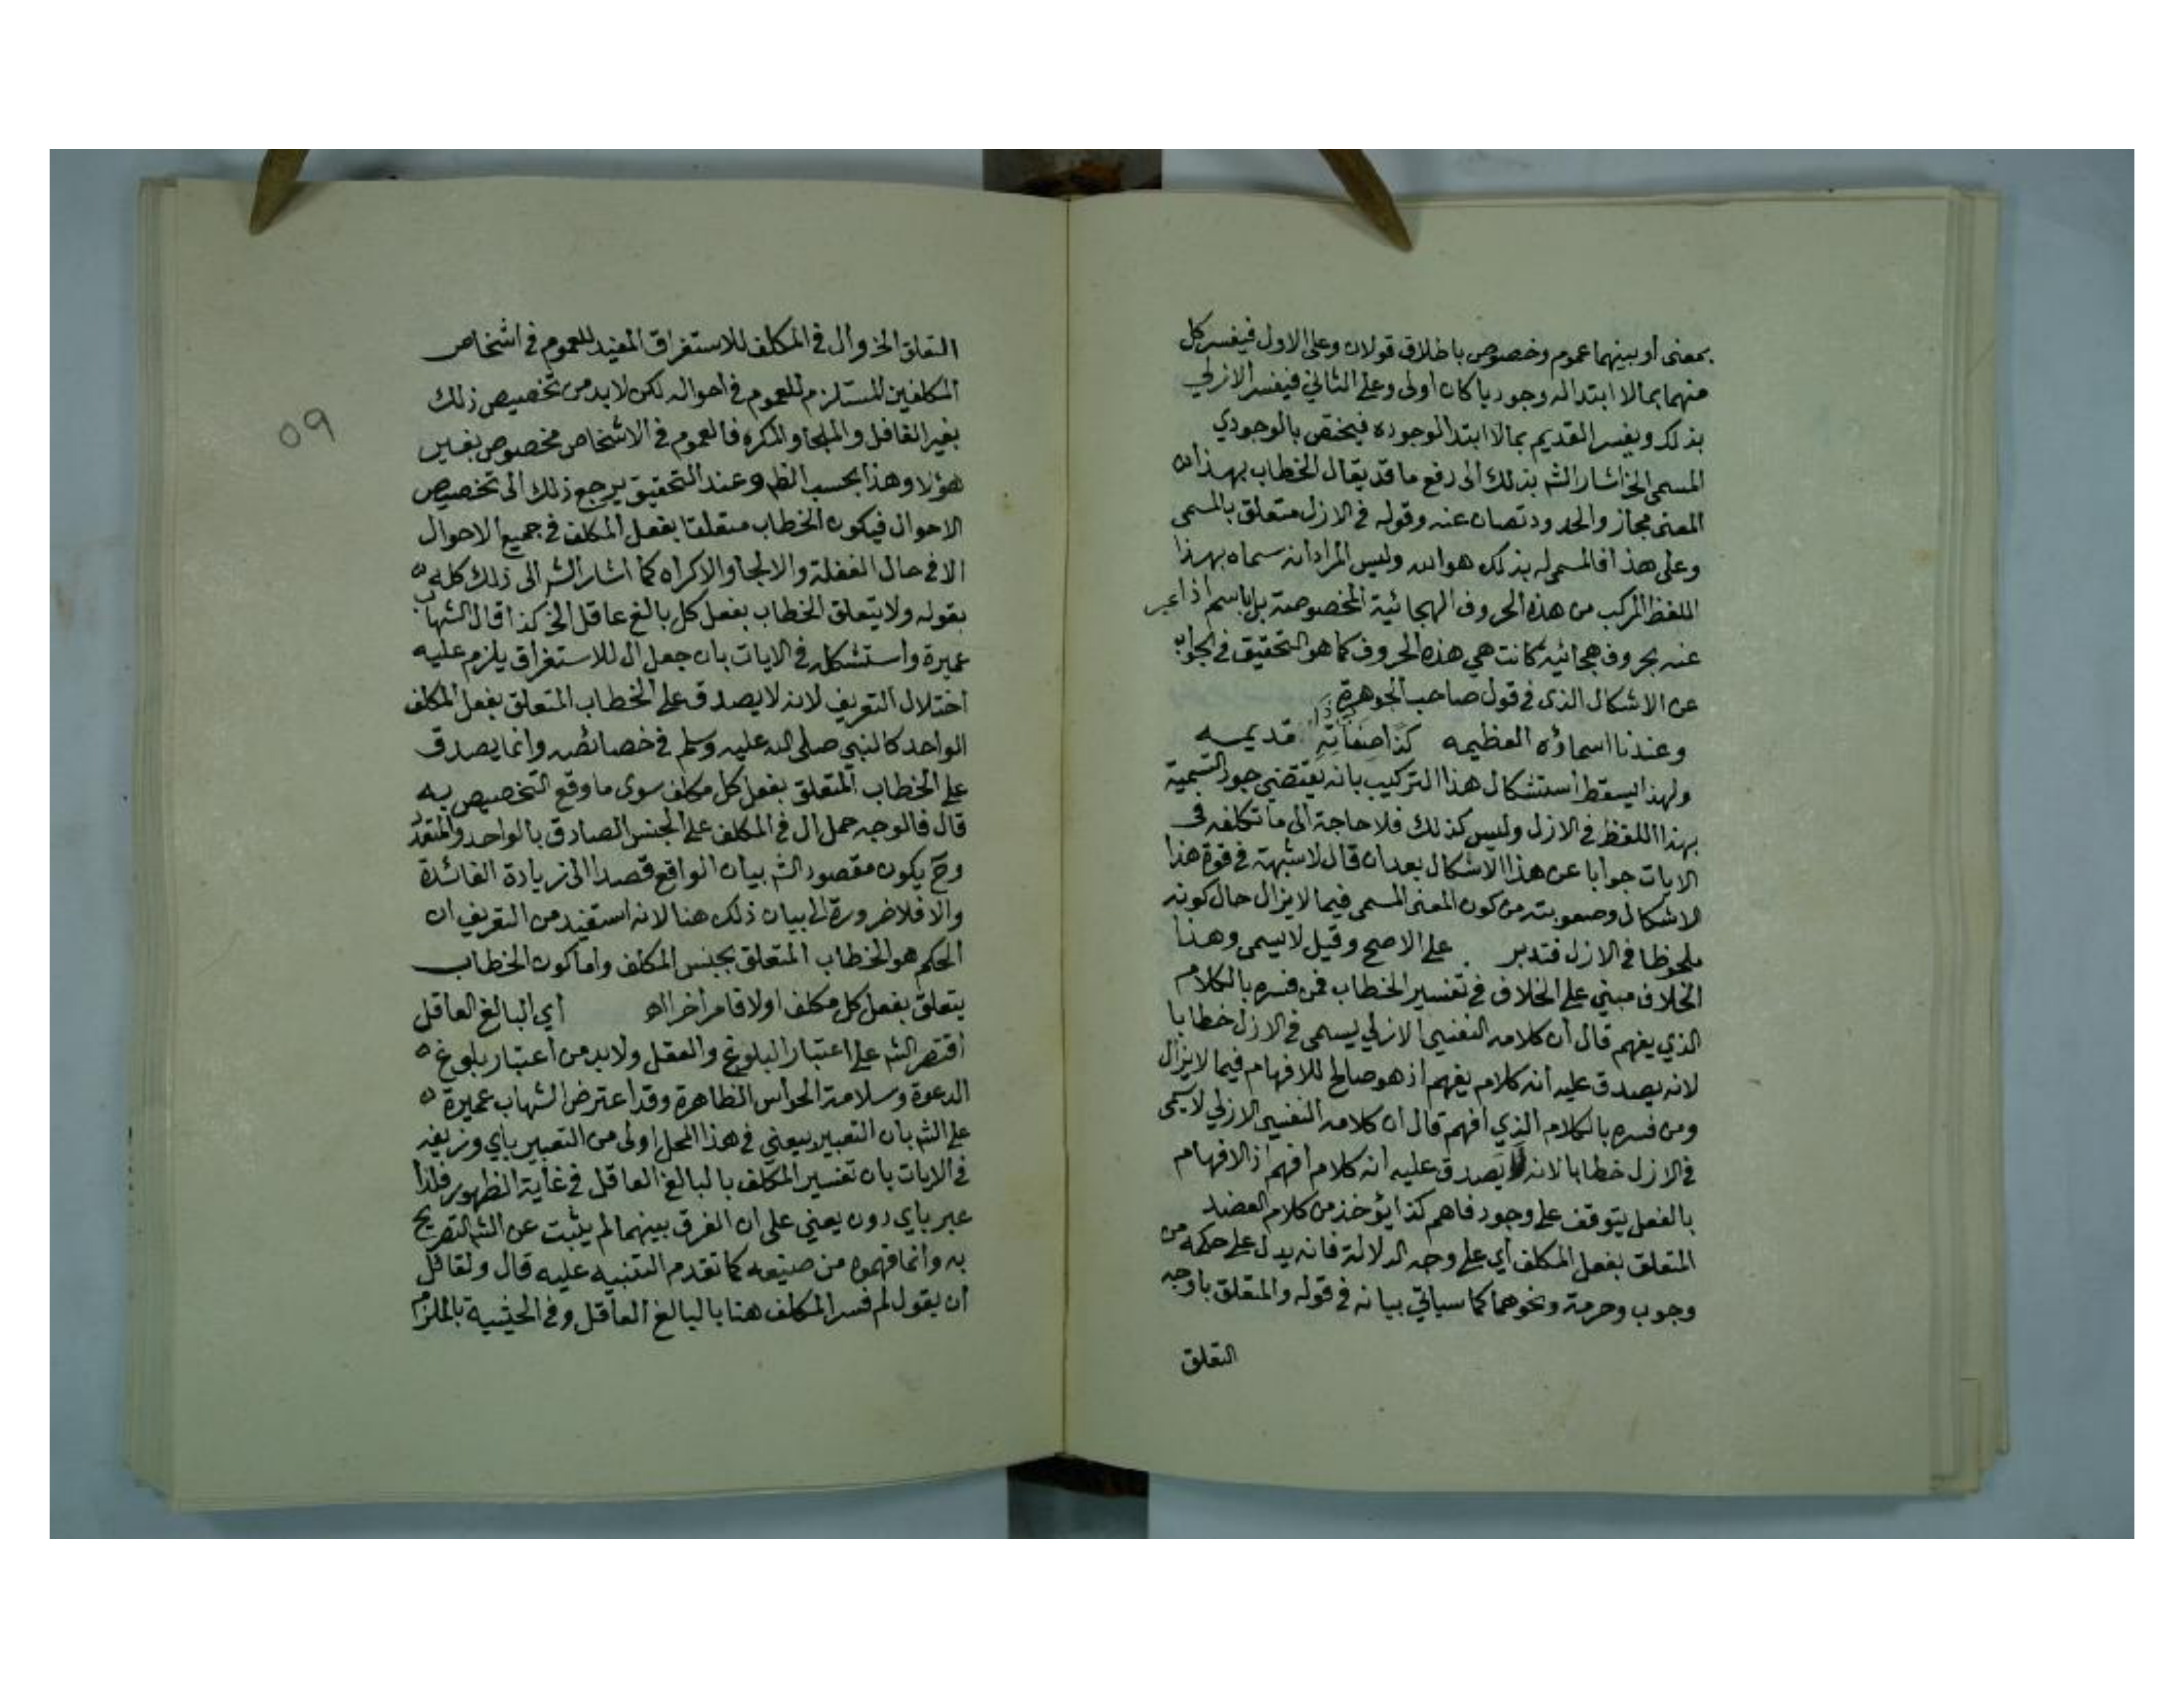 بمعنى أو بينهما عموم وخصوص باطلاق قولان وعلى الاول فيفسر كل
منهما بمالا ابتدا له وجوديا كان اولى وعلى الثاني فيفسر الازلي
بذلك ويفسر القديم بمالا ابتدا لوجوده فيختص بالوجودي
المسمى الخ اشار الش بذلك الى رفع ما قد يقال الخطاب بهذا
المعنى مجاز والحدود تصان عنه وقوله في الازل متعلق بالمسمى
وعلى هذا فالمسمى له بذلك هو الله وليس المراد انه سماه بهذا
اللفظ المركب من هذه الحروف الهجائية المخصوصة بل باسم اذا عبر
عنه بحروف هجائيه كانت هي هذه الحروف كما هو التحقيق في الجواب
عن الاشكال الذى في قول صاحب الجوهرة
وعندنا اسماؤه العظيمه كذا صفاته قديمه
ولهذا يسقط استشكال هذا التركيب بانه يقتضي جود التسمية
بهذا اللفظ في الازل وليس كذلك فلا حاجة الى ما تكلفه في
الايات جوابا عن هذا الاشكال بعد ان قال لا شبهة في قوة هذا
الاشكال وصعوبته من كون المعنى المسمى فيما لا يزال حال كونه
ملحوظا في الازل فتدبر على الاصح وقيل لا يسمى وهذا
الخلاف مبني على الخلاف في تفسير الخطاب فمن فسره بالكلام
الذي يفهم قال أن كلامه النفسي الازلي يسمى في الازل خطابا
لانه يصدق عليه أنه كلام يفهم اذ هو صالح للافهام فيما لا يزال
ومن فسره بالكلام الذي افهم قال ان كلامه النفسي الازلي لا يسمى
في الازل خطابا لانه لا يصدق عليه انه كلام افهم اذ الافهام
بالفعل يتوقف على وجود فاهم كذا يؤخذ من كلام العضد
المتعلق بفعل المكلف أي على وجه الدلالة فانه يدل على حكمه من
وجوب وحرمة ونحوهما كما سياتي بيانه في قوله والمتعلق باوجه
التعلق
٥٩
التعلق الخ وال في المكلف للاستغراق المفيد للعموم في اشخاص
المكلفين المستلزم للعموم في احواله لكن لا بد من تخصيص ذلك
بغير الغافل والملجأ والمكره فالعموم في الاشخاص مخصوص بغير
هؤلا وهذا بحسب الظ وعند التحقيق يرجع ذلك الى تخصيص
الاحوال فيكون الخطاب متعلقا بفعل المكلف في جميع الاحوال
الا في حال الغفلة والالجا والاكراه كما اشار الش الى ذلك كله
بقوله ولا يتعلق الخطاب بفعل كل بالغ عاقل الخ كذا قال الشهاب
عميرة واستشكله في الايات بان جعل ال للاستغراق يلزم عليه
اختلال التعريف لانه لا يصدق على الخطاب المتعلق بفعل المكلف
الواحد كالنبي صلى الله عليه وسلم في خصائصه وانما يصدق
على الخطاب المتعلق بفعل كل مكلف سوى ما وقع التخصيص به
قال فالوجه حمل ال في المكلف على الجنس الصادق بالواحد والمتعدد
وح يكون مقصود الش بيان الواقع قصدا الى زيادة الفائدة
والا فلا ضرورة الى بيان ذلك هنا لانه استفيد من التعريف ان
الحكم هو الخطاب المتعلق بجنس المكلف واما كون الخطاب
يتعلق بفعل كل مكلف اولا فامر أخر اه أي البالغ العاقل
اقتصر الش على اعتبار البلوغ والعقل ولا بد من أعتبار بلوغ
الدعوة وسلامة الحواس الظاهرة وقد اعترض الشهاب عميرة
على الش بان التعبير بيعني في هذا المحل اولى من التعبير باي وزيفه
في الايات بان تفسير المكلف بالبالغ العاقل في غاية الظهور فلذا
عبر باي دون يعني على ان الفرق بينهما لم يثبت عن الش التصريح
به وانما فهموه من صنيعه كما تقدم التنبيه عليه قال ولقائل
أن يقول لم فسر المكلف هنا بالبالغ العاقل وفي الحيثية بالملزم